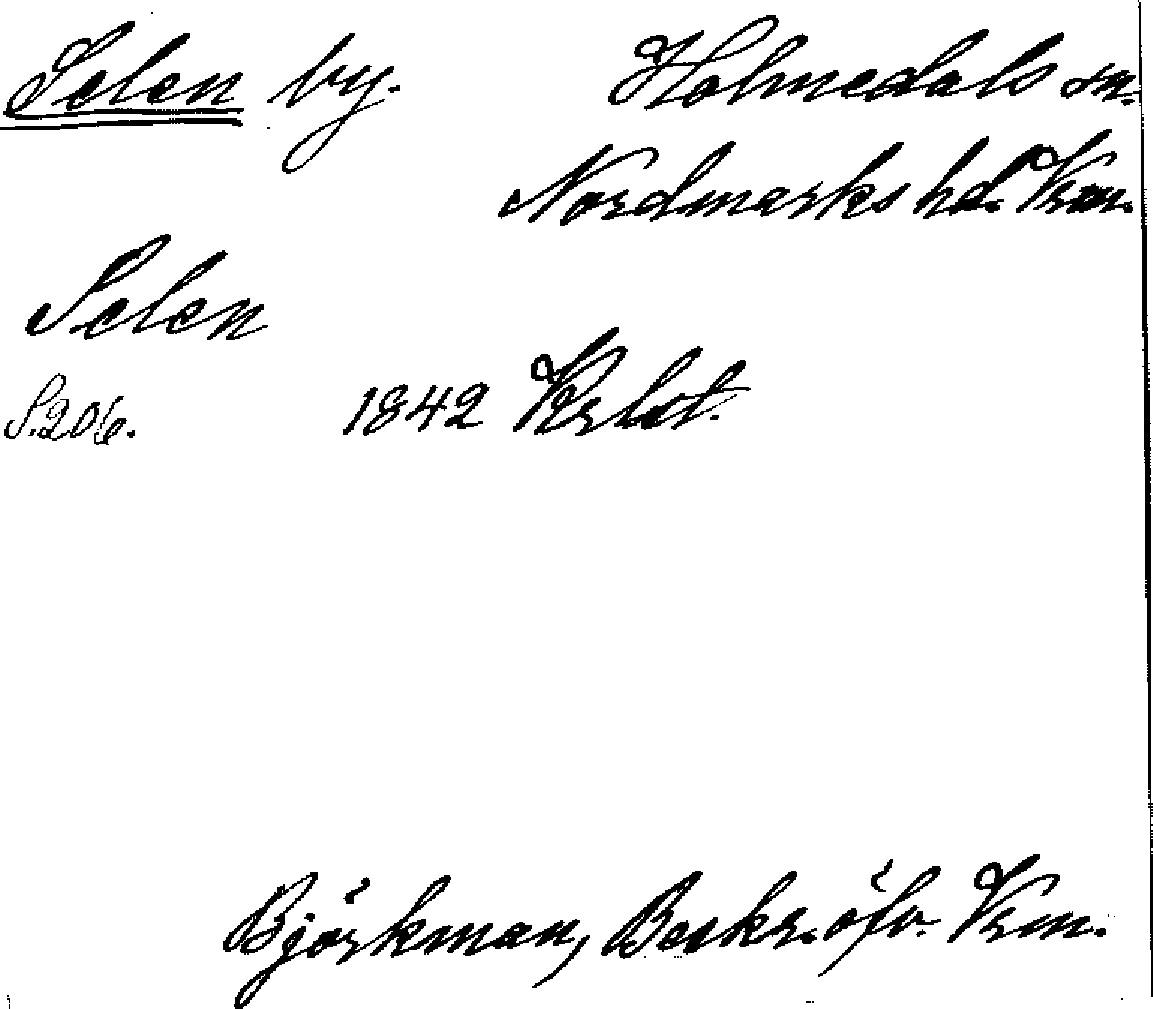 Selen by. Holmedals sn.
Nordmarks hd. Vrm.
Selen
S. 206. 1842
Björkman, Beskr. öfv. Vrm.